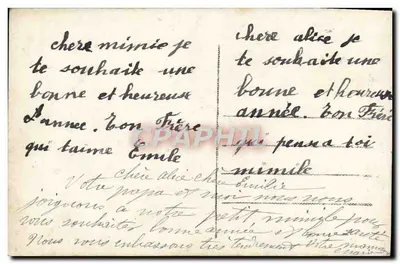 chere mimie je
te souhaite une
bonne et heureuse
L'annee. Ton Frère
qui t'aime Emile
chere alice je
te souhaite une
bonne et heureuse
année. Ton Frère
qui pensa toi
mimile
chère alice chere Emilie
Votre papa et moi nous nous
joignons à notre petit mimile pour
vous souhaiter bonne année et bonne santé
Nous vous embrassons très tendrement votre maman
CPAPHIL